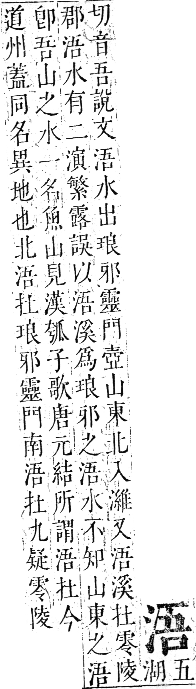 浯
五
湖
切音吾說文浯水出琅邪靈門壺山東北入濰又浯溪扗零陵
郡浯水有二演繁露誤以浯溪爲琅邪之浯水不知山東之浯
卽吾山之水一名魚山見漢瓠子歌唐元結所謂浯扗今
道州蓋同名異地也北浯扗琅邪靈門南浯扗九疑零陵